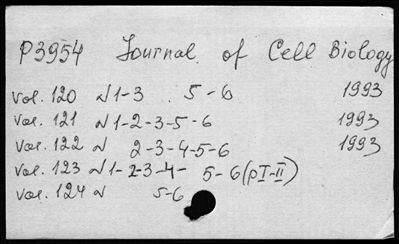 P3954 Journal of Cell Biology
vol. 120 N1-3 5-6 1993
vol. 121 N1-2-3-5-6 1993
vol. 122 N 2-3-4-5-6 1993
vol. 123 N1-2-3-4- 5-6(pI-II)
vol. 124 N 5-6